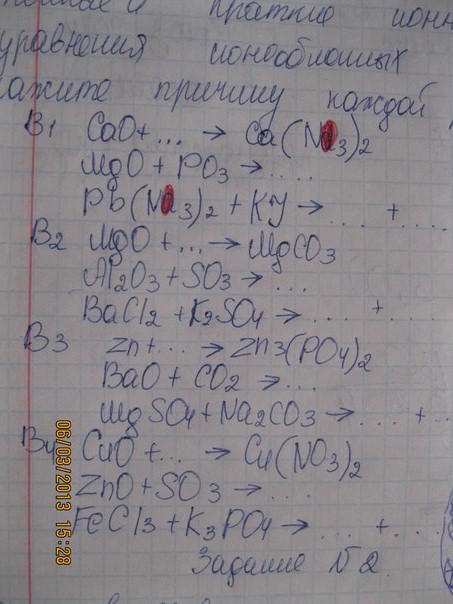 полные и краткие ионн
уравнения ионообменных
ажите причину каждой
В1 CaO + ... → Ca(NO3)2
MgO + PO3 → ....
Pb(NO3)2 + KJ → .... + ....
В2 MgO + ... → MgCO3
Al2O3 + SO3 → ....
BaCl2 + K2SO4 → .... + ....
В3 Zn + ... → Zn3(PO4)2
BaO + CO2 → ....
MgSO4 + Na2CO3 → .... + ...
В4 CuO + ... → Cu(NO3)2
ZnO + SO3 → ....
FeCl3 + K3PO4 → .... + ....
Задание №2
06/03/2013 15:28